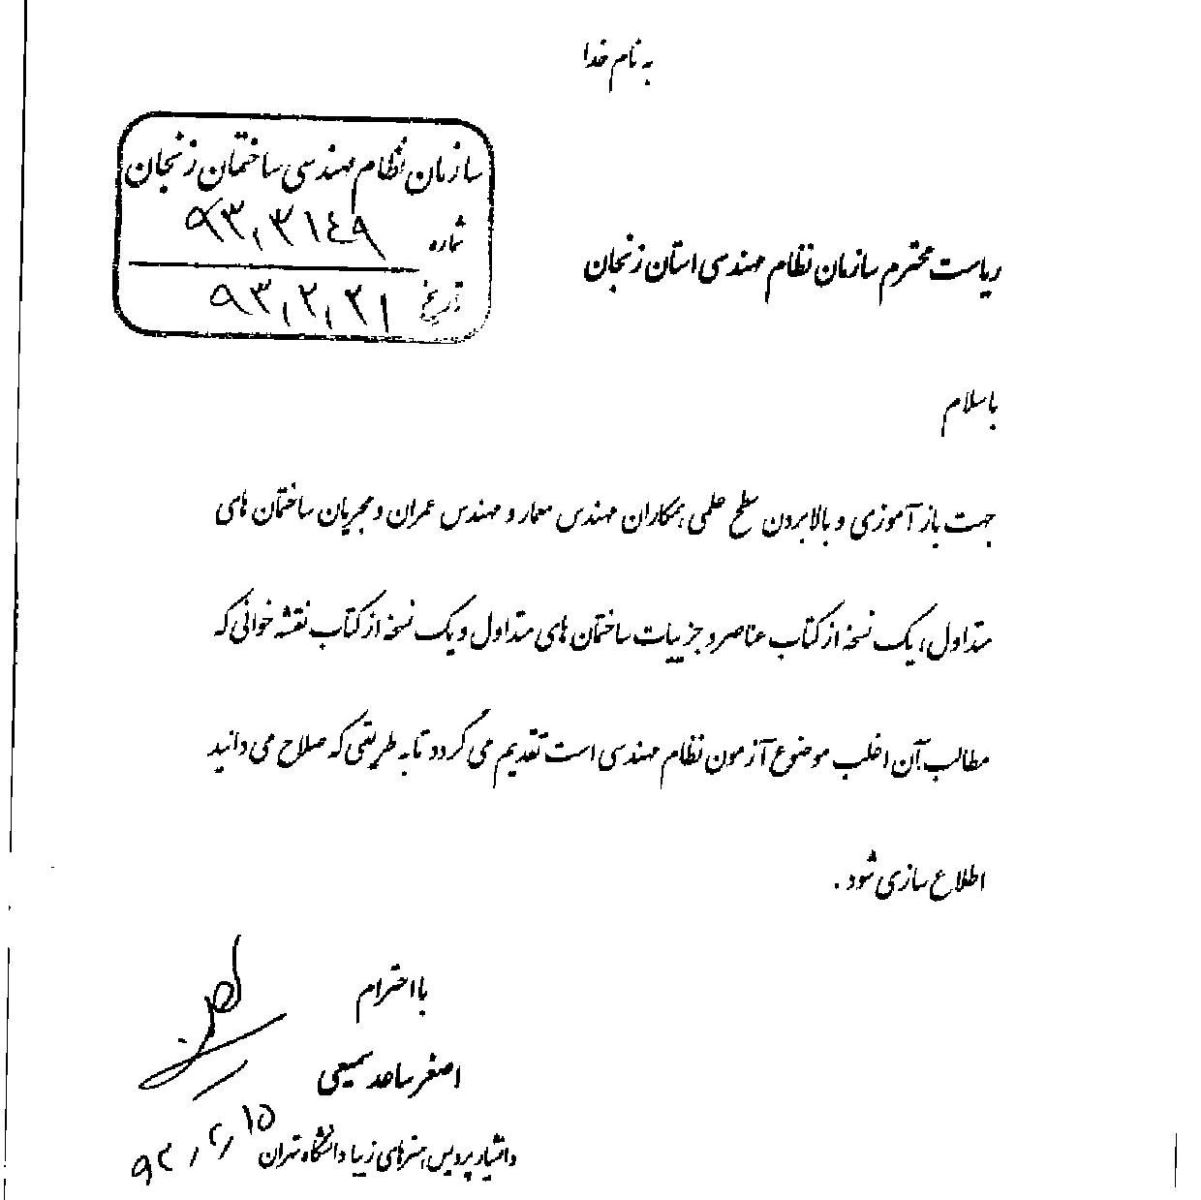 به نام خدا
سازمان نظام مهندسی ساختمان زنجان
شماره ۹۳،۳۱۴۹
تاریخ ۹۳،۲،۲۱
ریاست محترم سازمان نظام مهندسی استان زنجان
باسلام
جهت باز آموزی و بالا بردن سطح علمی همکاران مهندس معمار و مهندس عمران و مجریان ساختمان های
متداول، یک نسخه از کتاب عناصر و جزییات ساختمان های متداول و یک نسخه از کتاب نقشه خوانی که
مطالب آن اغلب موضوع آزمون نظام مهندسی است تقدیم می گردد تا به طریقی که صلاح می دانید
اطلاع سازی شود.
با احترام
اصغر ساعد سمیعی
دانشیار پردیس هنرهای زیبا دانشگاه تهران ۹۳،۲،۱۵